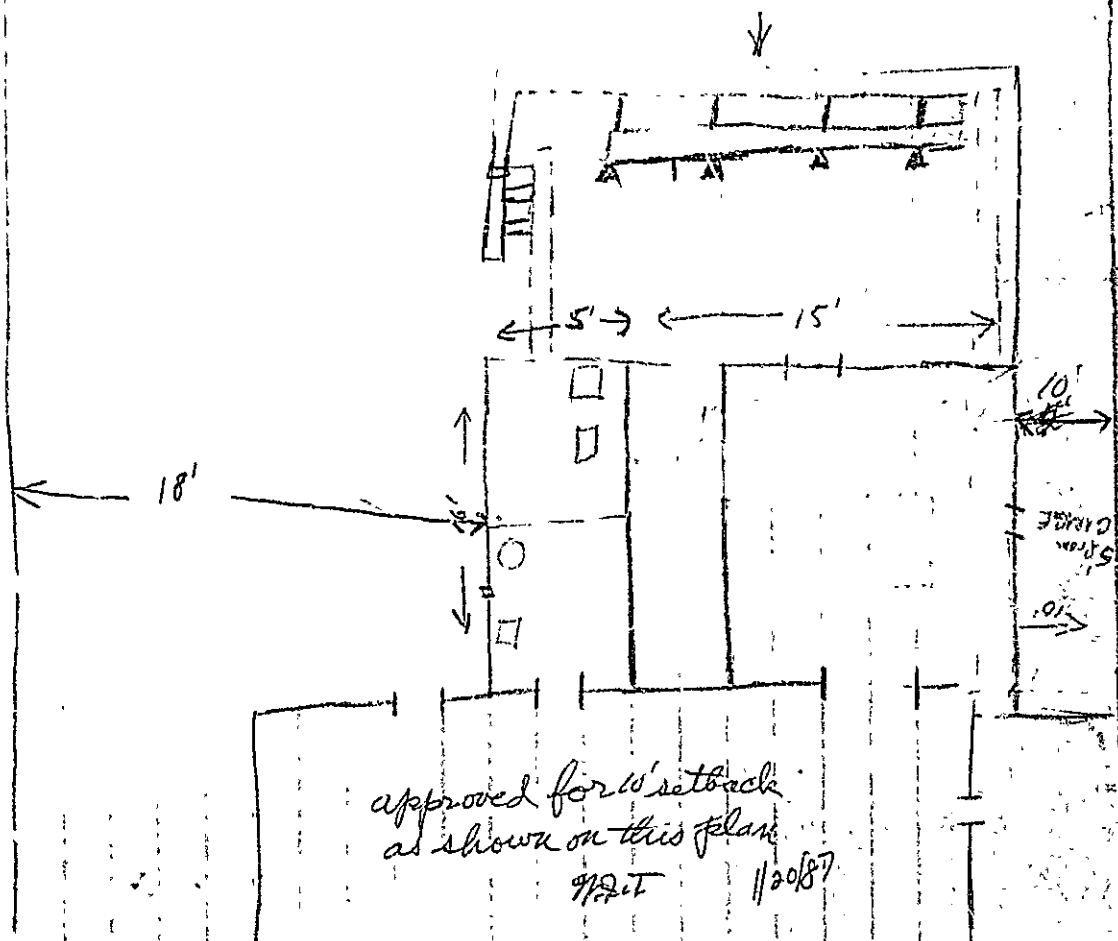 5' 15'
10'
18'
16'
5' from
GARAGE
10'
approved for 10' setback
as shown on this plan
1/20/87